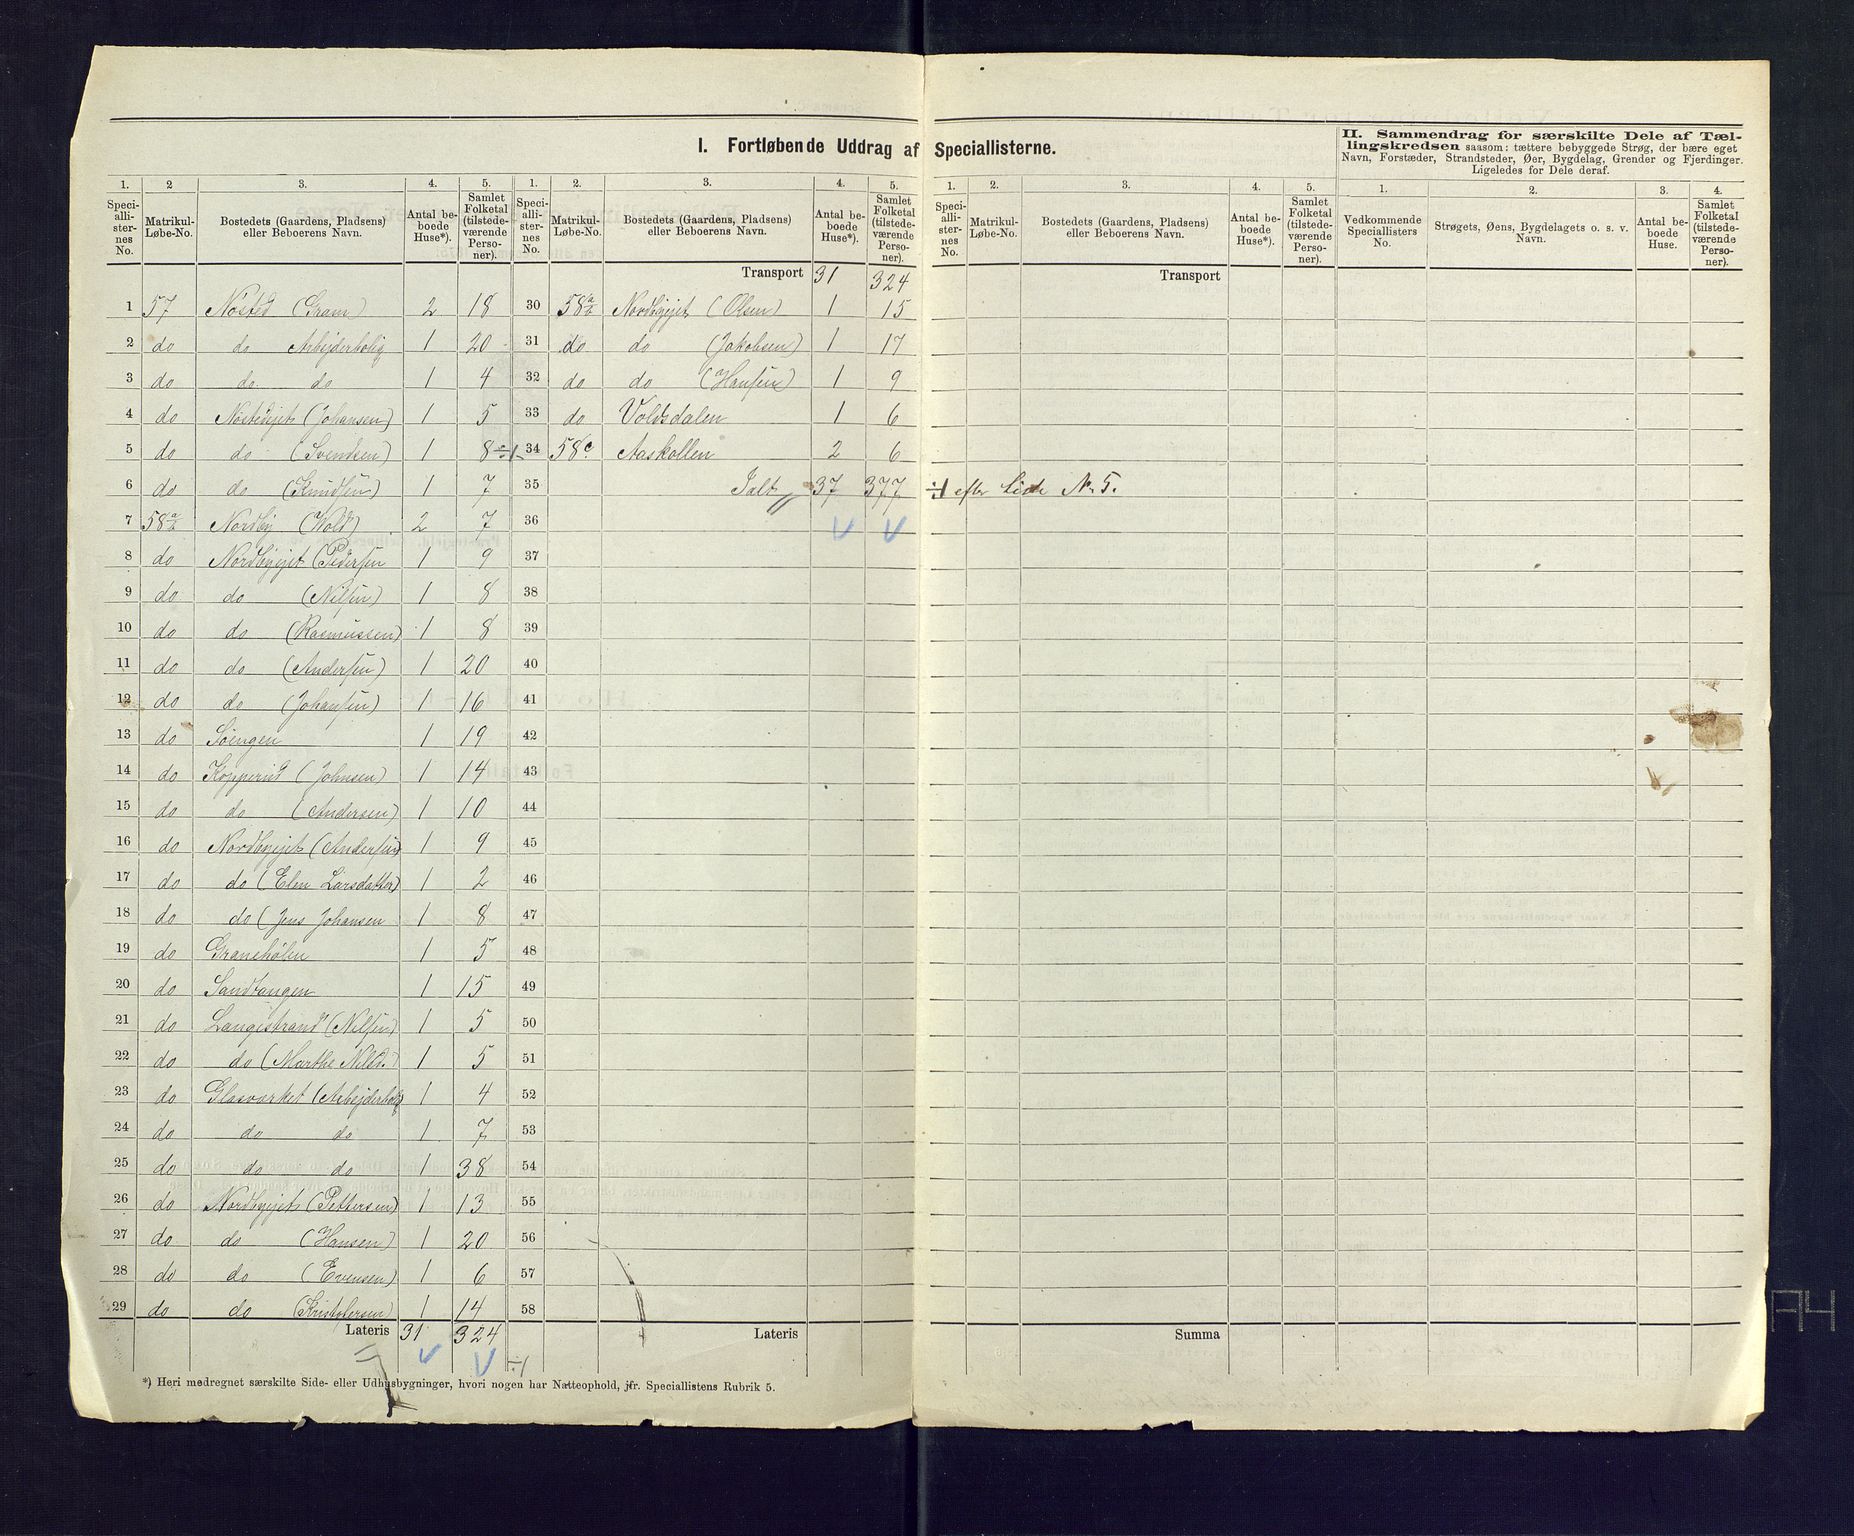 I. Fortløbende Uddrag af Speciallisterne.
II. Sammendrag for særskilte Dele af Tæl-
lingskredsen saasom: tættere bebyggede Strøg, der bære eget
Navn, Forstæder, Strandsteder, Øer, Bygdelag, Grender og Fjerdinger.
Ligeledes for Dele deraf.
1. 2 3. 4. 5. 1. 2. 3. 4. 5. 1. 2. 3. 4. 5. 1. 2. 3. 4.
Speciallisternes No. Matrikul-Løbe-No. Bostedets (Gaardens, Pladsens) eller Beboerens Navn. Antal beboede Huse*). Samlet Folketal (tilstedeværende Personer).
Speciallisternes No. Matrikul-Løbe-No. Bostedets (Gaardens, Pladsens) eller Beboerens Navn. Antal beboede Huse*). Samlet Folketal (tilstedeværende Personer).
Speciallisternes No. Matrikul-Løbe-No. Bostedets (Gaardens, Pladsens) eller Beboerens Navn. Antal beboede Huse*). Samlet Folketal (tilstedeværende Personer).
Vedkommende Speciallisters No. Strøgets, Øens, Bygdelagets o. s. v. Navn. Antal beboede Huse. Samlet Folketal (tilstedeværende Personer).
Transport 31 324 Transport
1 57 Nøsted (Gram) 2 18
2 do do Arbejderbolig 1 20
3 do do do 1 4
4 do Nøstedejet (Johansen) 1 5
5 do do (Svendsen) 1 8 ÷1
6 do do (Knudsen) 1 7
7 58a Nordby (Wold) 2 7
8 do Nordbyejet (Pedersen 1 9
9 do do (Nilsen) 1 8
10 do do (Rasmussen) 1 8
11 do do (Andersen) 1 20
12 do do (Johansen) 1 16
13 do Søengen 1 19
14 do (Johnsen) 1 14
15 do do (Andersen) 1 10
16 do Nordbyejet (Andersen) 1 9
17 do do (Elen Larsdatter) 1 2
18 do do (Jens Johansen 1 8
19 do Granehølen 1 5
20 do Sandtangen 1 15
21 do Langestrand (Nilsen) 1 5
22 do do (Marthe Nilsd.) 1 5
23 do Glasværket (Arbejderbolig 1 4
24 do do do 1 7
25 do do do 1 38
26 do Nordbyejet (Pettersen) 1 13
27 do do (Hansen) 1 20
28 do do (Evensen) 1 6
29 do do (Kristofersen) 1 14
Lateris 31 324
÷1
30 58a Nordbyejet (Olsen) 1 15
31 do do (Jakobsen) 1 17
32 do do (Hansen) 1 9
33 do Voldsdalen 1 6
34 58c Aaskollen 2 6
35 Ialt 37 377 ÷1 efter Liste No 5.
36
37
38
39
40
41
42
43
44
45
46
47
48
49
50
51
52
53
54
55
56
57
58
Lateris
Summa
*) Heri medregnet særskilte Side- eller Udhusbygninger, hvori nogen har Natteophold, jfr. Speciallistens Rubrik 5.